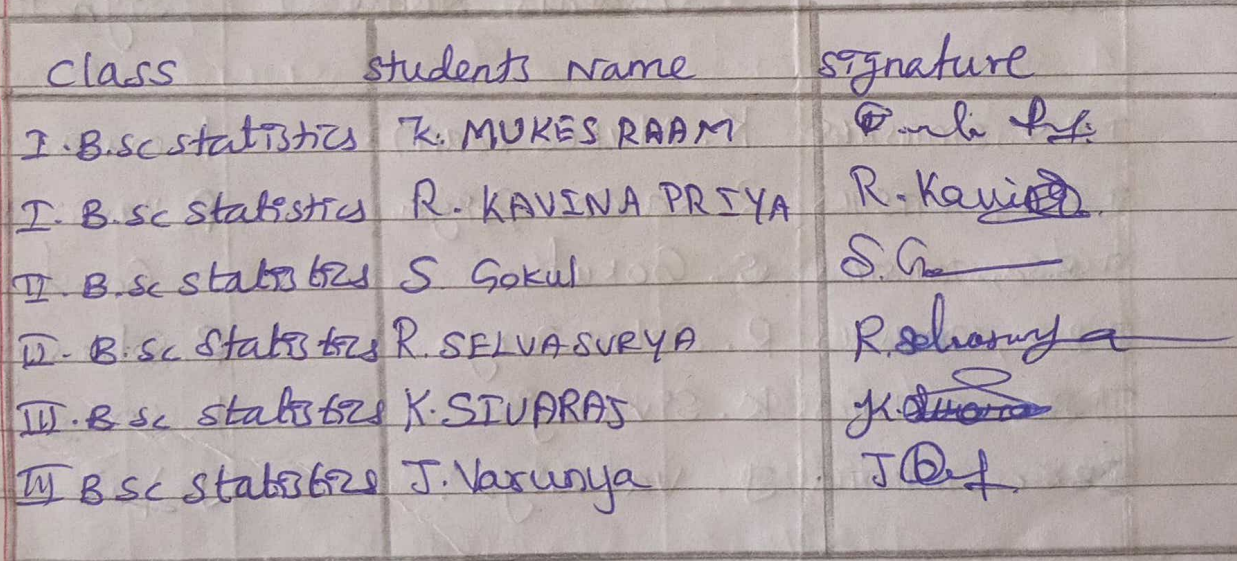 Class Students Name Signature
I. B.Sc Statistics K. MUKES RAAM
I. B.Sc Statistics R. KAVINA PRIYA R. Kavi
II. B.Sc Statistics S. Gokul S. G
II. B.Sc Statistics R. SELVASURYA R. Selvasurya
III. B Sc Statistics K. SIVARAJ K.
III B Sc Statistics J. Varunya J